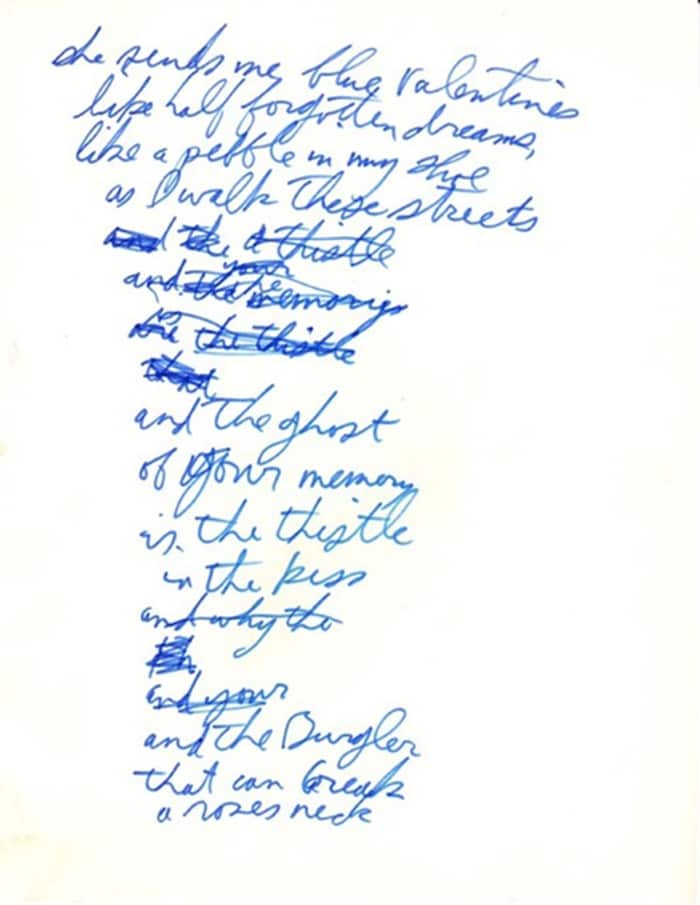 she sends me blue valentines
like half forgotten dreams,
like a pebble in my shoe
as I walk these streets
and the a thistle
your
and the memories
is the thistle
and the ghost
of your memory
is the thistle
in the kiss
and why the
and your
and the Burgler
that can break
a roses neck